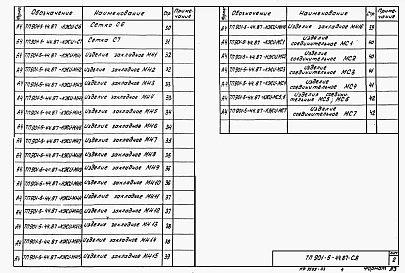 Обозначение Наименование Стр Приме-чание
А4 ТП 901-5-44.87-КЖИ-С6 Сетка С6 30
А4 ТП 901-5-44.87-КЖИ-С7 Сетка С7 31
А4 ТП 901-5-44.87-КЖИ-МН1 Изделие закладное МН1 32
А4 ТП 901-5-44.87-КЖИ-МН2 Изделие закладное МН2 32
А4 ТП 901-5-44.87-КЖИ-МН3 Изделие закладное МН3
А4 ТП 901-5-44.87-КЖИ-МН4 Изделие закладное МН4
А4 ТП 901-5-44.87-КЖИ-МН5 Изделие закладное МН5
А4 ТП 901-5-44.87-КЖИ-МН6 Изделие закладное МН6 34
А4 ТП 901-5-44.87-КЖИ-МН7 Изделие закладное МН7 35
А4 ТП 901-5-44.87-КЖИ-МН8 Изделие закладное МН8
А4 ТП 901-5-44.87-КЖИ-МН9 Изделие закладное МН9 36
А4 ТП 901-5-44.87-КЖИ-МН10 Изделие закладное МН10 36
А4 ТП 901-5-44.87-КЖИ-МН11 Изделие закладное МН11 37
А4 ТП 901-5-44.87-КЖИ-МН12 Изделие закладное МН12 37
А4 ТП 901-5-44.87-КЖИ-МН13 Изделие закладное МН13 38
А4 ТП 901-5-44.87-КЖИ-МН14 Изделие закладное МН14 38
А4 ТП 901-5-44.87-КЖИ-МН15 Изделие закладное МН15 39
Обозначение Наименование Стр Приме-чание
А4 ТП 901-5-44.87-КЖИ-МН16 Изделие закладное МН16 39
А4 ТП 901-5-44.87-КЖИ-МС1 Изделие соединительное МС1 40
А4 ТП 901-5-44.87-КЖИ-МС2 Изделие соединительное МС2 40
А4 ТП 901-5-44.87-КЖИ-МС3 Изделие соединительное МС3 41
А4 ТП 901-5-44.87-КЖИ-МС4 Изделие соединительное МС4 41
А4 ТП 901-5-44.87-КЖИ-МС5,6 Изделия соедини-тельные МС5; МС6 42
А4 ТП 901-5-44.87-КЖИ-МС7 Изделие соединительное МС7 42
ТП 901-5-44.87-СД
Лист 2
Формат А3